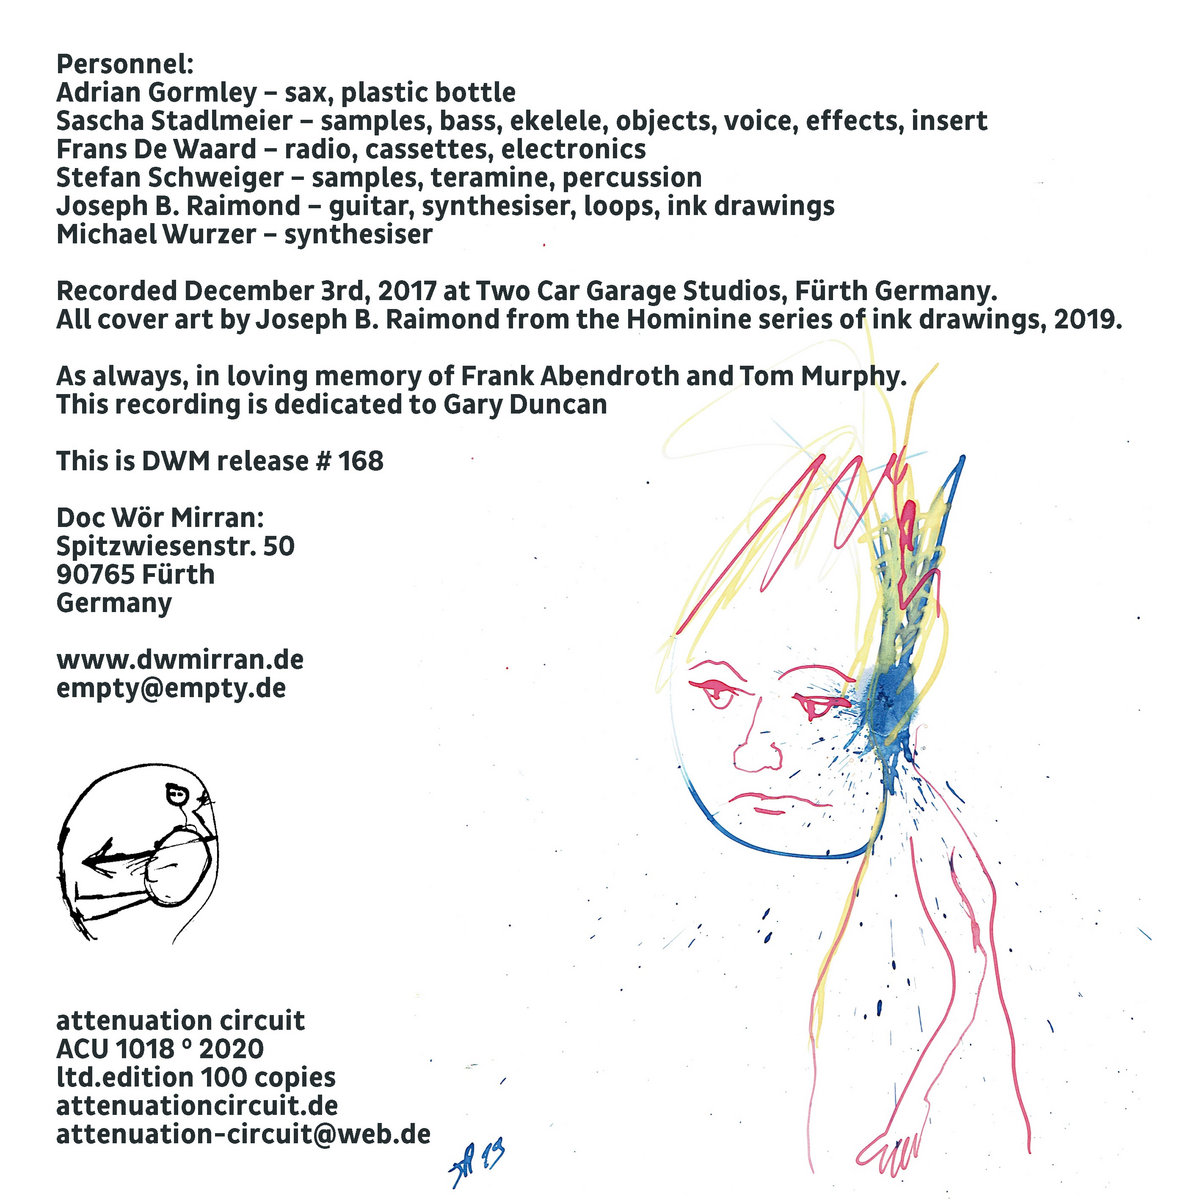 Personnel:
Adrian Gormley – sax, plastic bottle
Sascha Stadlmeier – samples, bass, ekelele, objects, voice, effects, insert
Frans De Waard – radio, cassettes, electronics
Stefan Schweiger – samples, teramine, percussion
Joseph B. Raimond – guitar, synthesiser, loops, ink drawings
Michael Wurzer – synthesiser
Recorded December 3rd, 2017 at Two Car Garage Studios, Fürth Germany.
All cover art by Joseph B. Raimond from the Hominine series of ink drawings, 2019.
As always, in loving memory of Frank Abendroth and Tom Murphy.
This recording is dedicated to Gary Duncan
This is DWM release # 168
Doc Wör Mirran:
Spitzwiesenstr. 50
90765 Fürth
Germany
www.dwmirran.de
empty@empty.de
attenuation circuit
ACU 1018 º 2020
ltd.edition 100 copies
attenuationcircuit.de
attenuation-circuit@web.de